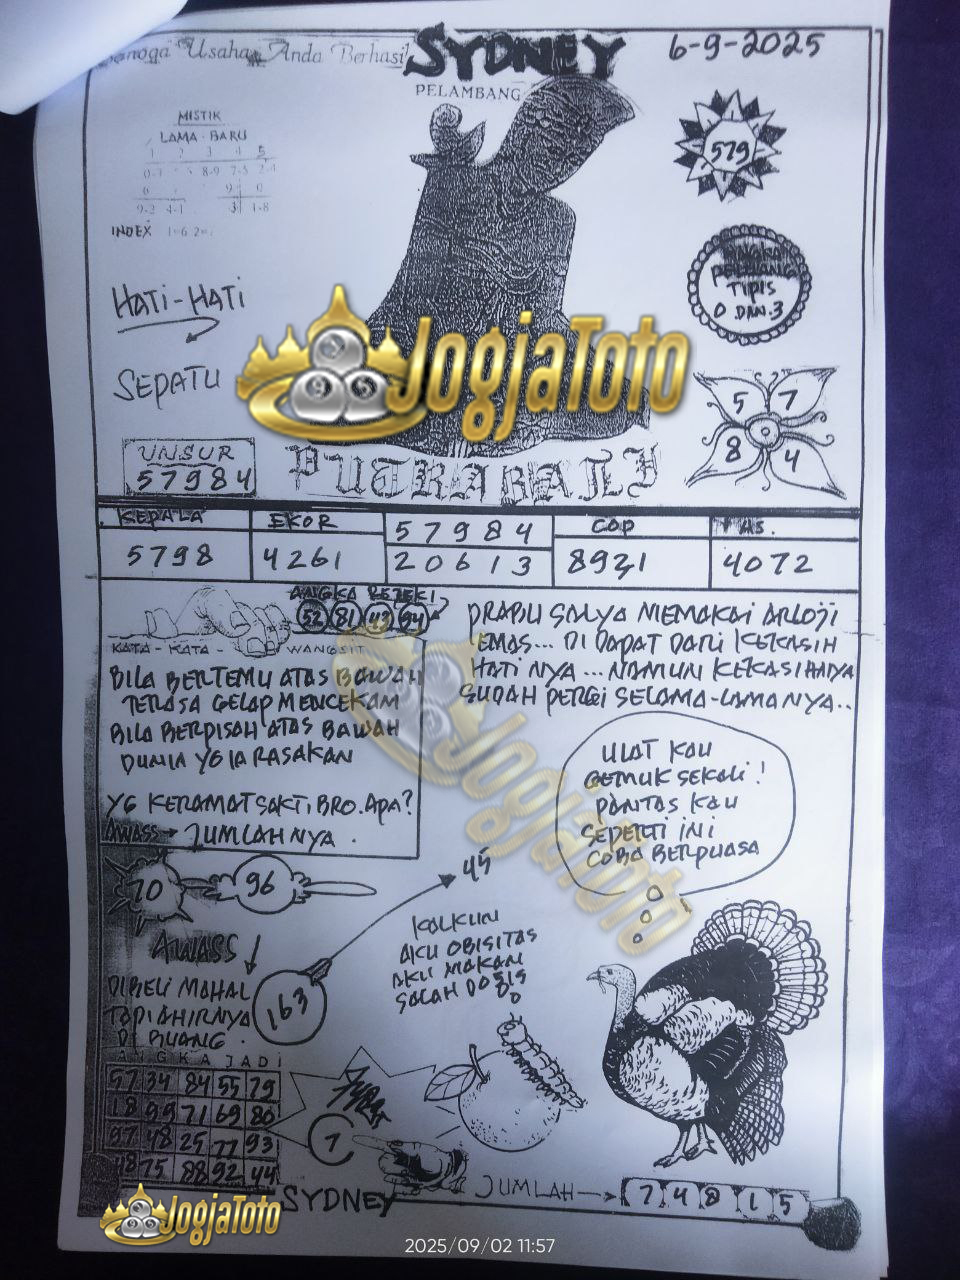 Semoga Usaha Anda Berhasil
SYDNEY
6-9-2025
PELAMBANG
MISTIK
LAMA - BARU
1 2 3 4 5
8-9 7-5 2-4
6 9 0
9-3 4-1 3 1-8
INDEX 1=6
579
PELUANG
TIPIS
0 DAN.3
HATI-HATI
SEPATU
JogjaToto
5 7
8 4
UNSUR
57984
PUTRA BALI
KEPALA EKOR 57984 COP AS.
5798 4261 20613 8921 4072
ANGKA REJEKI
52 81 43 94
KATA - KATA - WANGSIT
BILA BERTEMU ATAS BAWAH
TERASA GELAP MENCEKAM
BILA BERPISAH ATAS BAWAH
DUNIA YG IA RASAKAN
YG KERAMAT SAKTI BRO. APA?
AWASS → JUMLAHNYA.
PRABU SALYA MEMAKAI ARLOJI
EMAS... DI DAPAT DARI KEKASIH
HATI NYA... NAMUN KEKASIHNYA
SUDAH PERGI SELAMA-LAMANYA..
JogjaToto
ULAT KAU
GEMUK SEKALI!
PANTAS KAU
SEPERTI INI
COBA BERPUASA
70 96
45
AWASS
DIBELI MAHAL
TAPI AHIRNYA
DI BUANG.
163
KALKUN
AKU OBISITAS
AKU MAKAN
SALAH DOSIS
ANGKA JADI
57 34 84 55 79
18 99 71 69 80
97 48 25 77 93
75 88 92 44
7
SYDNEY
JUMLAH → 7 4 8 1 5
JogjaToto
2025/09/02 11:57